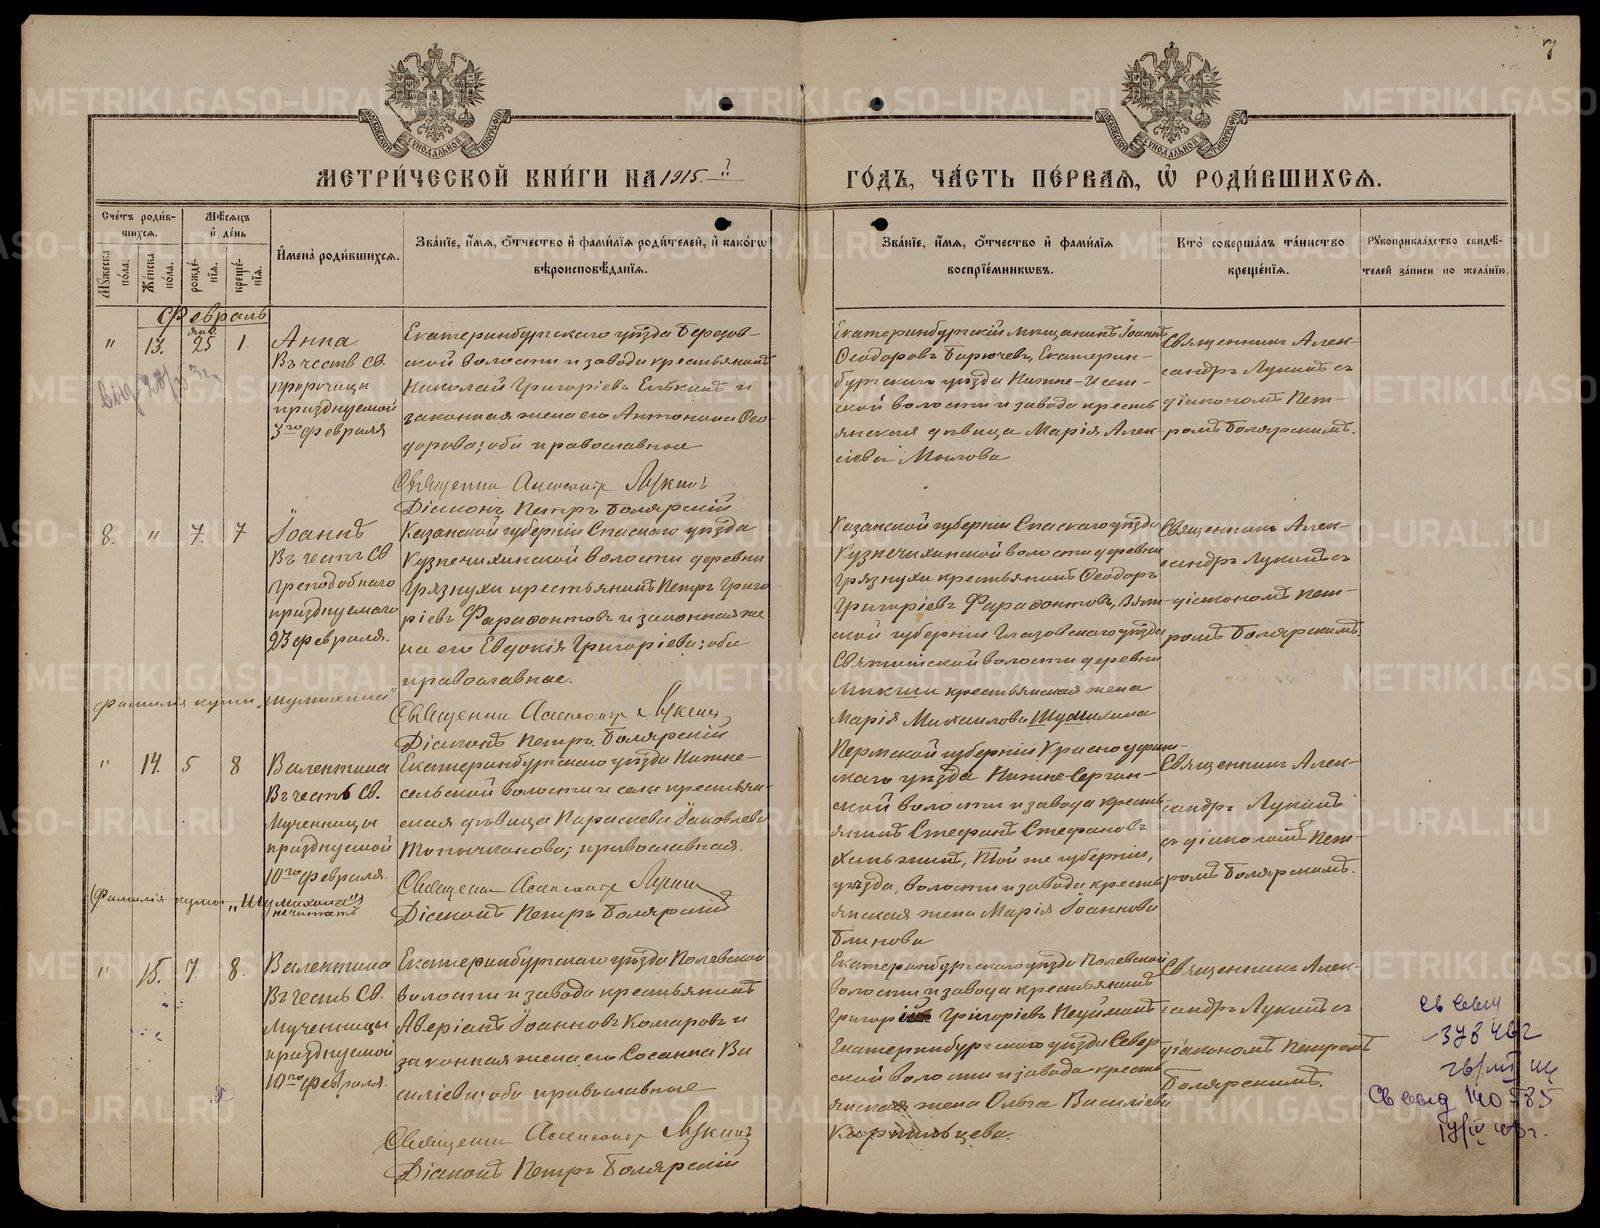 7
МОСКОВСКОЙ СѴНОДАЛЬНОЙ ТИПОГРАФІИ
МОСКОВСКОЙ СѴНОДАЛЬНОЙ ТИПОГРАФІИ
МЕТРИ́ЧЕСКОЙ КНИ́ГИ НА 1915.й
ГО́ДЪ, ЧА́СТЬ ПЕ́РВАЯ, Ѡ РОДИ́ВШИХСЯ.
Сче́тъ роди́в-
шихся.
Мѣ́сяцъ
и де́нь
Мꙋ́жеска
по́ла.
Же́нска
по́ла.
рожде́-
нія.
креще́-
нія.
И́мена̀ роди́вшихся.
Зва́ніе, и́мя, о́тчество и фами́лія роди́телей, и како́гѡ
вѣроисповѣ́данія.
Зва́ніе, и́мя, о́тчество и фами́лія
воспріе́мникѡвъ.
Кто̀ соверша́лъ та́инство
креще́нія.
Рꙋкоприкла́дство свидѣ́-
телей за́писи по жела́нію.
Февраль
янв.
" 13. 25 1.
Анна
Въ честь Св.
пророчицы
празднуемой
3го февраля
Екатеринбургскаго уѣзда Березов-
ской волости и завода крестьянинъ
Николай Григоріевъ Елькинъ и
законная жена его Антонина Ѳео-
дорова; оба православные
Священникъ Александръ Лукинъ
Діаконъ Петръ Боярскій
Екатеринбургскій мѣщанинъ Іоаннъ
Ѳеодоровъ Барючевъ, Екатерин-
бургскаго уѣзда Нижне-Исет-
ской волости и завода кресть
янская дѣвица Марія Алек-
сіева Мылова
Священникъ Алек-
сандръ Лукинъ съ
діакономъ Пет-
ромъ Боярскимъ.
8. " 7. 7
Іоаннъ
Въ честь Св
Преподобнаго
празднуемаго
23 февраля.
Казанской губерніи Спаскаго уѣзда
Кузнечихинской волости деревни
Грязнухи крестьянинъ Петръ Григо
ріевъ Фарафонтовъ и законная же
на его Евдокія Григоріева; оба
православные.
Священникъ Александръ Лукинъ
Діаконъ Петръ Боярскій
Казанской губерніи Спаскаго уѣзда
Кузнечихинской волости деревни
Грязнухи крестьянинъ Ѳеодоръ
Григоріевъ Фарафонтовъ, Вят-
ской губерніи Глазовскаго уѣзда
волости деревни
крестьянская жена
Марія Михаилова Шумихина
Священникъ Алек-
сандръ Лукинъ съ
діакономъ Пет-
ромъ Боярскимъ.
фамилія кумы „Шумихина"
" 14. 5 8
Валентина
Въ честь Св.
Мученицы
празднуемой
10го февраля.
Екатеринбургскаго уѣзда Нижне-
сельской волости и села крестьян-
ская дѣвица Параскева Іаковлева
православная.
Священникъ Александръ Лукинъ
Діаконъ Петръ Боярскій
Пермской губерніи Красноуфим-
скаго уѣзда Нижне-Сергин-
ской волости и завода кресть
янинъ Стефанъ Стефановъ
Той же губерніи,
уѣзда, волости и завода кресть
янская жена Марія Іоаннова
Блинова
Священникъ Алек-
сандръ Лукинъ
съ діакономъ Пет-
ромъ Боярскимъ.
(Фамилія кумы „Шумихина"
не читать
" 15. 7. 8.
Валентина
Въ честь Св.
Мученицы
празднуемой
10го февраля.
Екатеринбургскаго уѣзда Полевской
волости и завода крестьянинъ
Аверіанъ Іоанновъ Комаровъ и
законная жена его Сосанна Ва
силіева; оба православные
Священникъ Александръ Лукинъ
Діаконъ Петръ Боярскій
Екатеринбургскаго уѣзда Полевской
волости и завода крестьянинъ
Григорій Григоріевъ
Екатеринбургскаго уѣзда Север-
ской волости и завода кресть
янская жена Ольга Василіева
Кормильцева.
Священникъ Алек-
сандръ Лукинъ съ
діакономъ Петромъ
Боярскимъ.
140585
METRIKI.GASO-URAL.RU